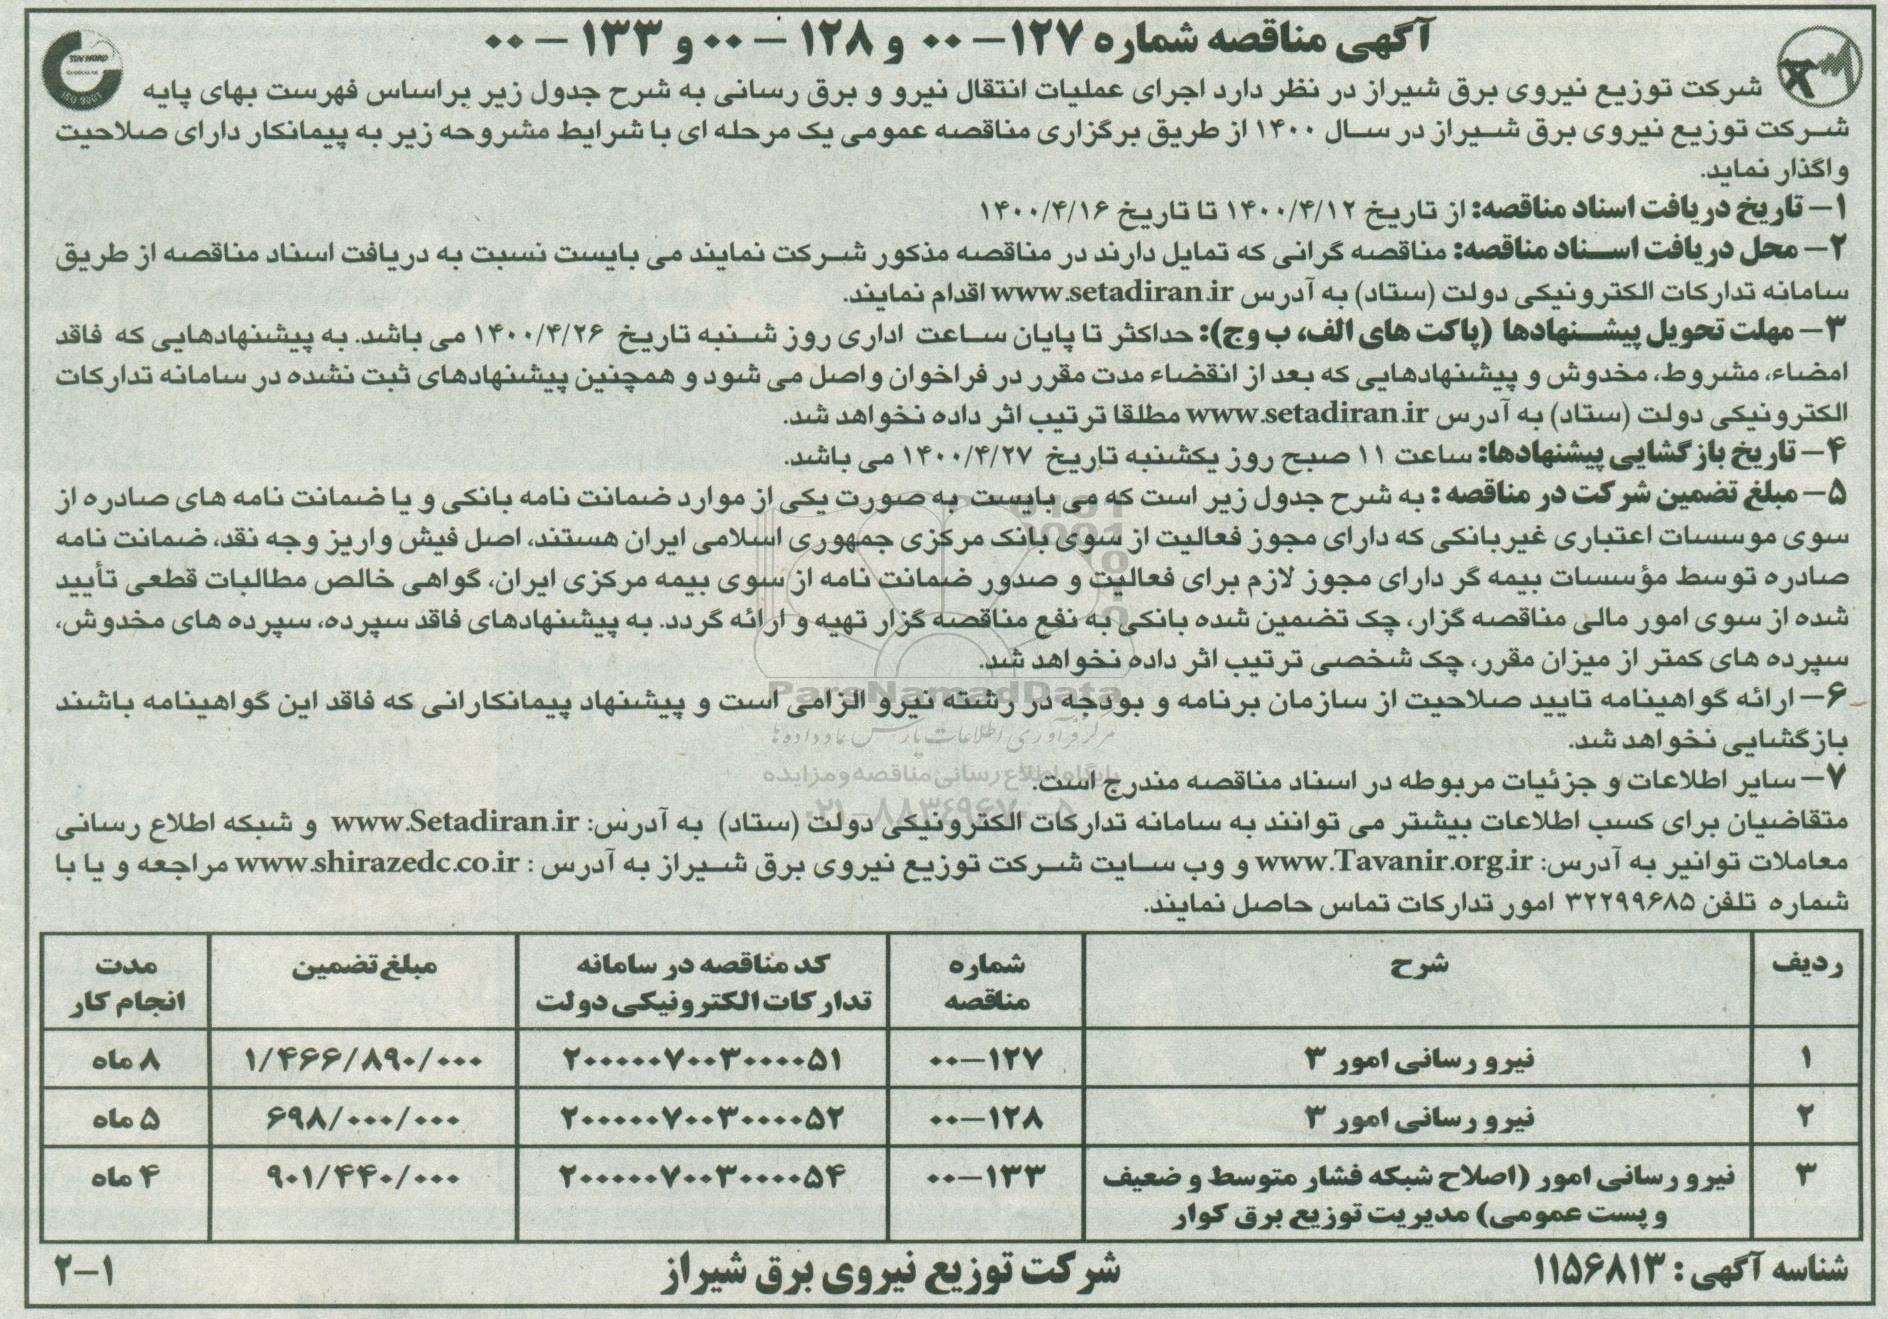 آگهی مناقصه شماره ۱۲۷–۰۰ و ۱۲۸–۰۰ و ۱۳۳–۰۰
شرکت توزیع نیروی برق شیراز در نظر دارد اجرای عملیات انتقال نیرو و برق رسانی به شرح جدول زیر براساس فهرست بهای پایه
شرکت توزیع نیروی برق شیراز در سال ۱۴۰۰ از طریق برگزاری مناقصه عمومی یک مرحله ای با شرایط مشروحه زیر به پیمانکار دارای صلاحیت
واگذار نماید.
۱– تاریخ دریافت اسناد مناقصه: از تاریخ ۱۴۰۰/۴/۱۲ تا تاریخ ۱۴۰۰/۴/۱۶
۲– محل دریافت اسناد مناقصه: مناقصه گرانی که تمایل دارند در مناقصه مذکور شرکت نمایند می بایست نسبت به دریافت اسناد مناقصه از طریق
سامانه تدارکات الکترونیکی دولت (ستاد) به آدرس www.setadiran.ir اقدام نمایند.
۳– مهلت تحویل پیشنهادها (پاکت های الف، ب وج): حداکثر تا پایان ساعت اداری روز شنبه تاریخ ۱۴۰۰/۴/۲۶ می باشد. به پیشنهادهایی که فاقد
امضاء، مشروط، مخدوش و پیشنهادهایی که بعد از انقضاء مدت مقرر در فراخوان واصل می شود و همچنین پیشنهادهای ثبت نشده در سامانه تدارکات
الکترونیکی دولت (ستاد) به آدرس www.setadiran.ir مطلقا ترتیب اثر داده نخواهد شد.
۴– تاریخ بازگشایی پیشنهادها: ساعت ۱۱ صبح روز یکشنبه تاریخ ۱۴۰۰/۴/۲۷ می باشد.
۵– مبلغ تضمین شرکت در مناقصه : به شرح جدول زیر است که می بایست به صورت یکی از موارد ضمانت نامه بانکی و یا ضمانت نامه های صادره از
سوی موسسات اعتباری غیربانکی که دارای مجوز فعالیت از سوی بانک مرکزی جمهوری اسلامی ایران هستند، اصل فیش واریز وجه نقد، ضمانت نامه
صادره توسط مؤسسات بیمه گر دارای مجوز لازم برای فعالیت و صدور ضمانت نامه از سوی بیمه مرکزی ایران، گواهی خالص مطالبات قطعی تأیید
شده از سوی امور مالی مناقصه گزار، چک تضمین شده بانکی به نفع مناقصه گزار تهیه و ارائه گردد. به پیشنهادهای فاقد سپرده، سپرده های مخدوش،
سپرده های کمتر از میزان مقرر، چک شخصی ترتیب اثر داده نخواهد شد.
ParsNamadData
۶– ارائه گواهینامه تایید صلاحیت از سازمان برنامه و بودجه در رشته نیرو الزامی است و پیشنهاد پیمانکارانی که فاقد این گواهینامه باشند
بازگشایی نخواهد شد.
مرکز فرآوری اطلاعات پارس نماد داده ها
پایگاه اطلاع رسانی مناقصه و مزایده
۷– سایر اطلاعات و جزئیات مربوطه در اسناد مناقصه مندرج است.
۰۲۱–۸۸۳۴۹۶۷۰–۵
متقاضیان برای کسب اطلاعات بیشتر می توانند به سامانه تدارکات الکترونیکی دولت (ستاد) به آدرس: www.Setadiran.ir و شبکه اطلاع رسانی
معاملات توانیر به آدرس: www.Tavanir.org.ir و وب سایت شرکت توزیع نیروی برق شیراز به آدرس : www.shirazedc.co.ir مراجعه و یا با
شماره تلفن ۳۲۲۹۹۶۸۵ امور تدارکات تماس حاصل نمایند.
ردیف شرح شماره مناقصه کد مناقصه در سامانه تدارکات الکترونیکی دولت مبلغ تضمین مدت انجام کار
۱ نیرو رسانی امور ۳ ۱۲۷–۰۰ ۲۰۰۰۰۰۷۰۰۳۰۰۰۰۵۱ ۱/۴۶۶/۸۹۰/۰۰۰ ۸ ماه
۲ نیرو رسانی امور ۳ ۱۲۸–۰۰ ۲۰۰۰۰۰۷۰۰۳۰۰۰۰۵۲ ۶۹۸/۰۰۰/۰۰۰ ۵ ماه
۳ نیرو رسانی امور (اصلاح شبکه فشار متوسط و ضعیف و پست عمومی) مدیریت توزیع برق کوار ۱۳۳–۰۰ ۲۰۰۰۰۰۷۰۰۳۰۰۰۰۵۴ ۹۰۱/۴۴۰/۰۰۰ ۴ ماه
شناسه آگهی : ۱۱۵۶۸۱۳ شرکت توزیع نیروی برق شیراز ۲–۱